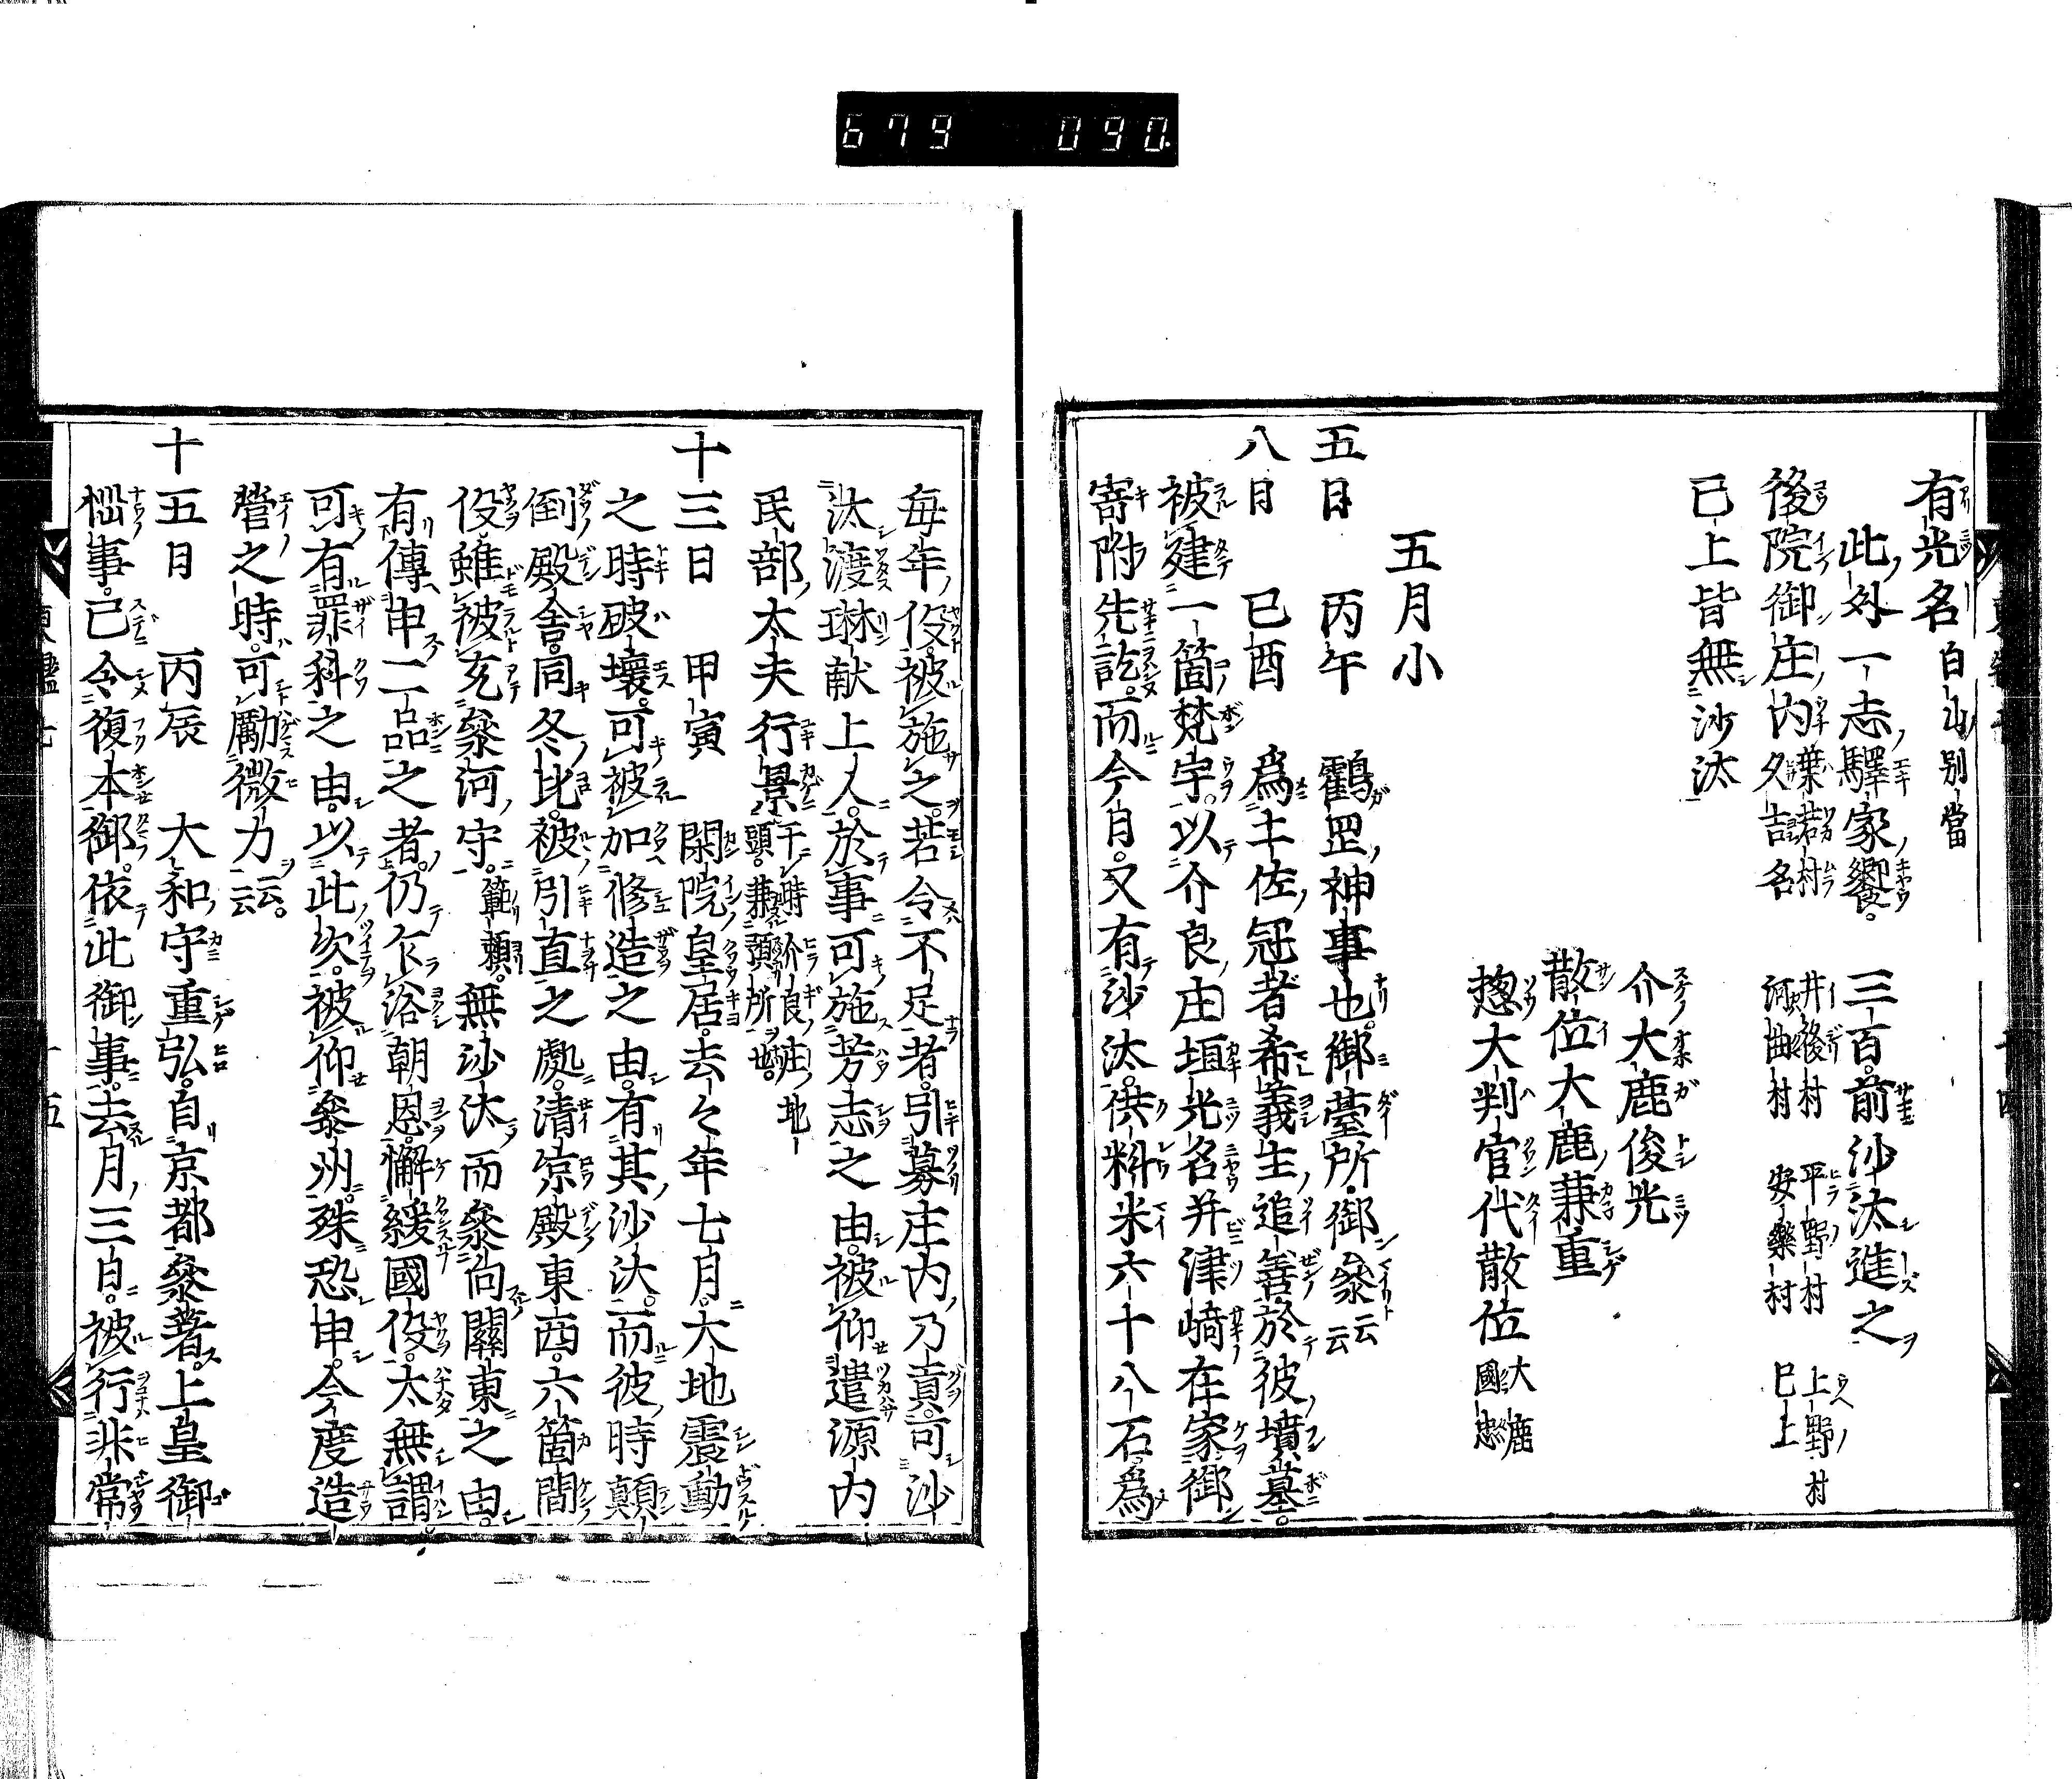 679 090
有光名 白山別當
此外一志驛家饗 三百前沙汰進之
後院御庄内 葉若村 井後村 平野村 上野村
夕吉名 河曲村 安樂村 已上
已上皆無沙汰
介大鹿俊光
散位大鹿兼重
惣大判官代散位 大鹿國忠
五月小
五日 丙午 鶴岡神事也御臺所御參云云
八日 己酉 爲土佐冠者希義生追善於彼墳墓
被建一箇梵宇以介良庄垣光名并津崎在家御
寄附先訖而今日又有沙汰供料米六十八石爲
毎年役被施之若令不足者引募庄内乃貢可沙
汰渡琳献上人於事可施芳志之由被仰遣源内
民部太夫行景 干時介良庄地頭兼預所也
十三日 甲寅 閑院皇居去々年七月大地震動
之時破壞可被加修造之由有其沙汰而彼時顛
倒殿舎同冬比被引直之處清凉殿東西六箇間
役雖被充參河守範頼無沙汰而參向關東之由
有傳申二品之者仍乍浴朝恩懈緩國役太無謂
可有罪科之由以此次被仰參州殊恐申今度造
營之時可勵微力云云
十五日 丙辰 大和守重弘自京都參著上皇御
惱事已令復本御依此御事去月三日被行非常